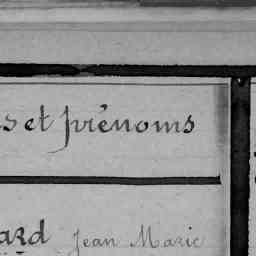 s et prénoms
ard Jean Marie